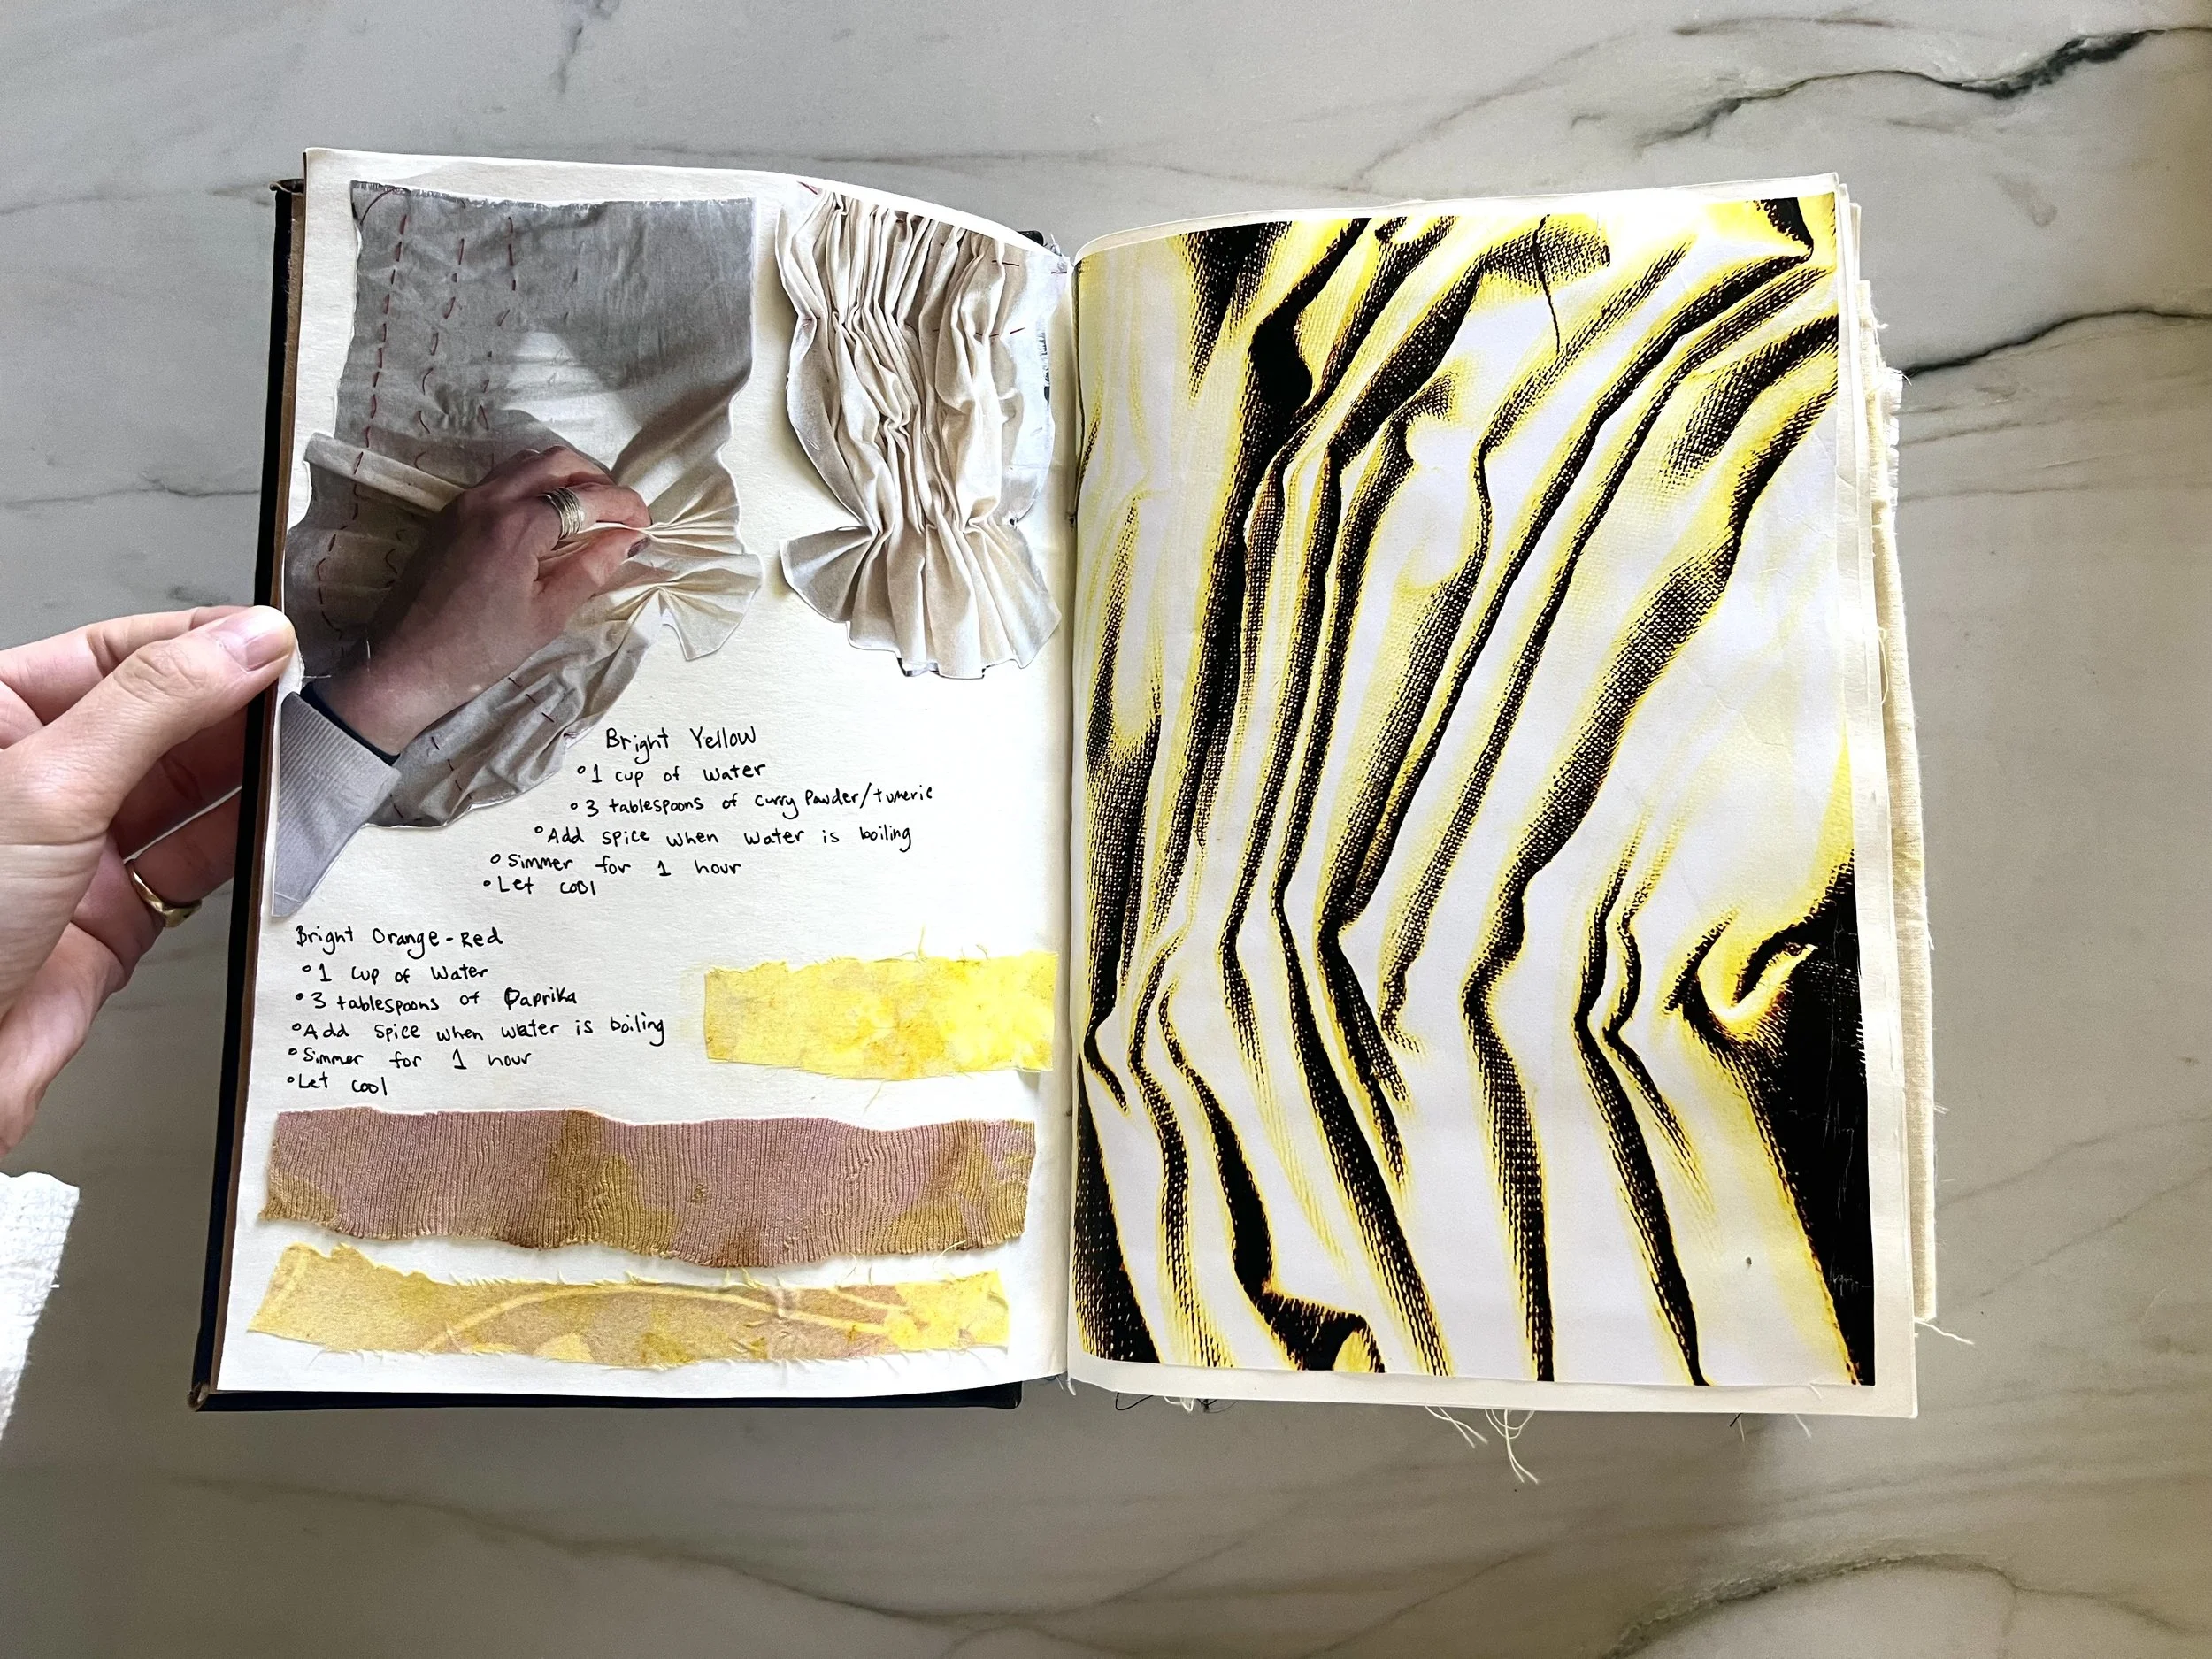 Bright Yellow
°1 cup of water
°3 tablespoons of Curry Powder/tumeric
°Add spice when water is boiling
°Simmer for 1 hour
°Let cool
Bright Orange-Red
°1 cup of water
°3 tablespoons of Paprika
°Add spice when water is boiling
°Simmer for 1 hour
°Let cool